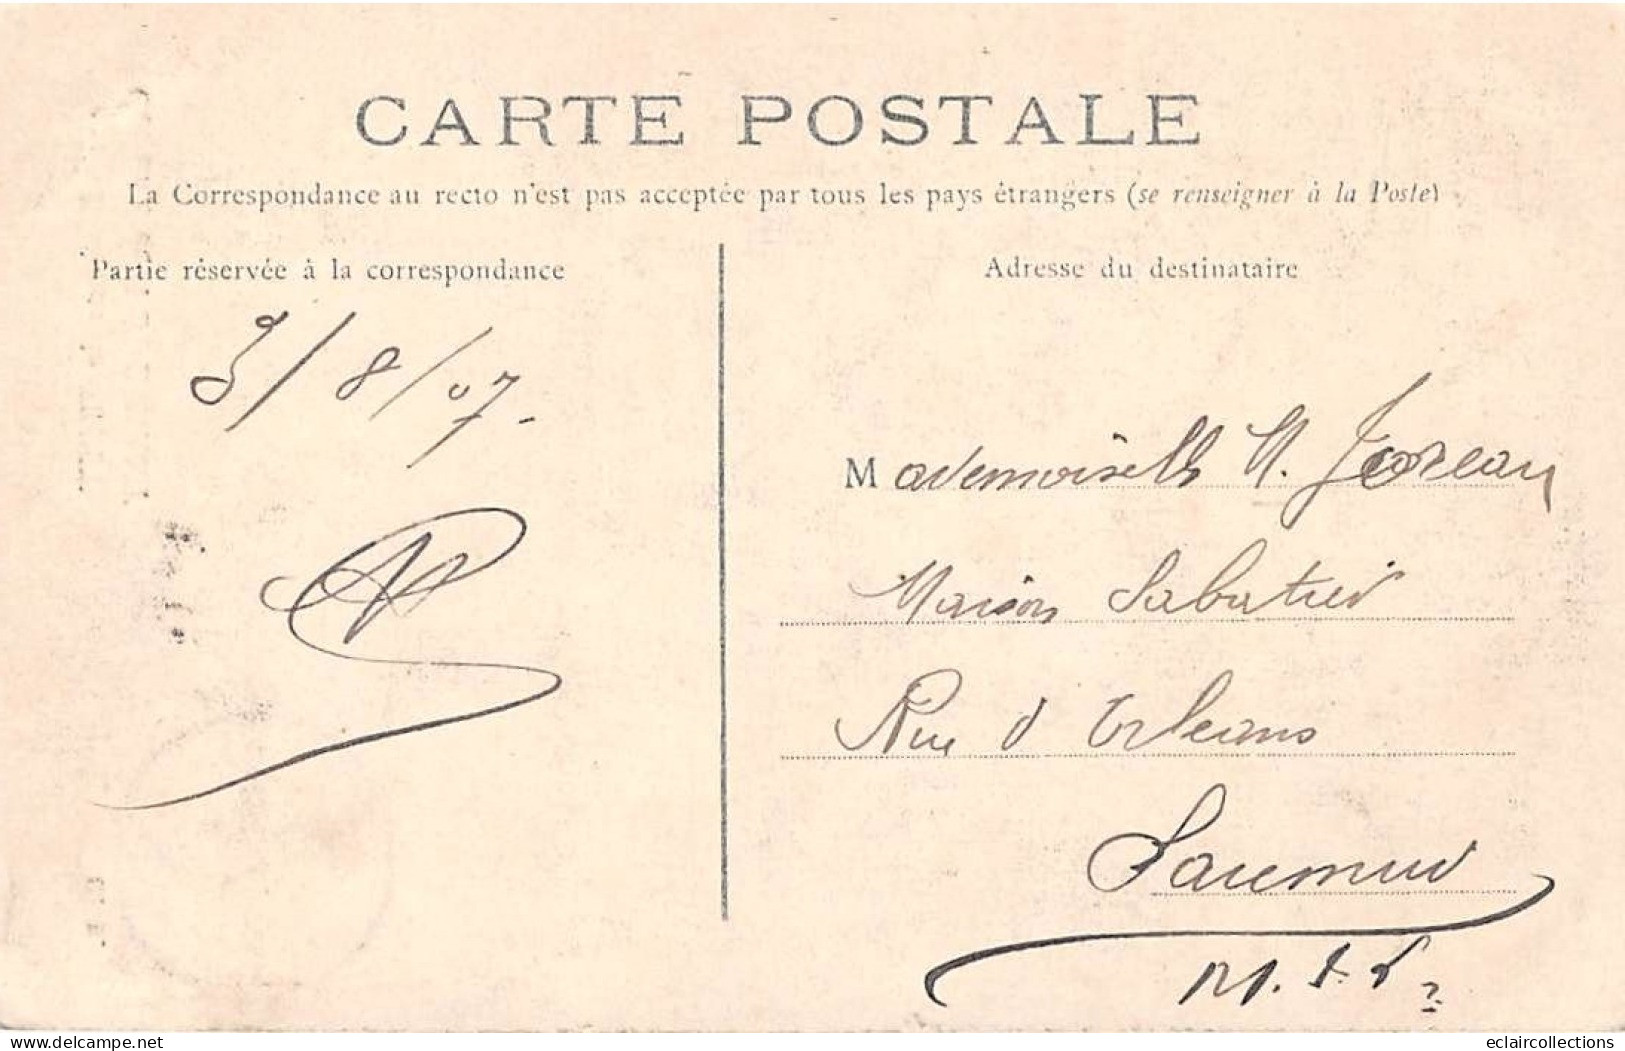 CARTE POSTALE
La Correspondance au recto n'est pas acceptée par tous les pays étrangers (se renseigner à la Poste)
Partie réservée à la correspondance
Adresse du destinataire
3/8/07.
Mademoiselle M.
Maison Sabatier
Rue d'Orleans
Saumur
M. & L.
delcampe.net
eclaircollections